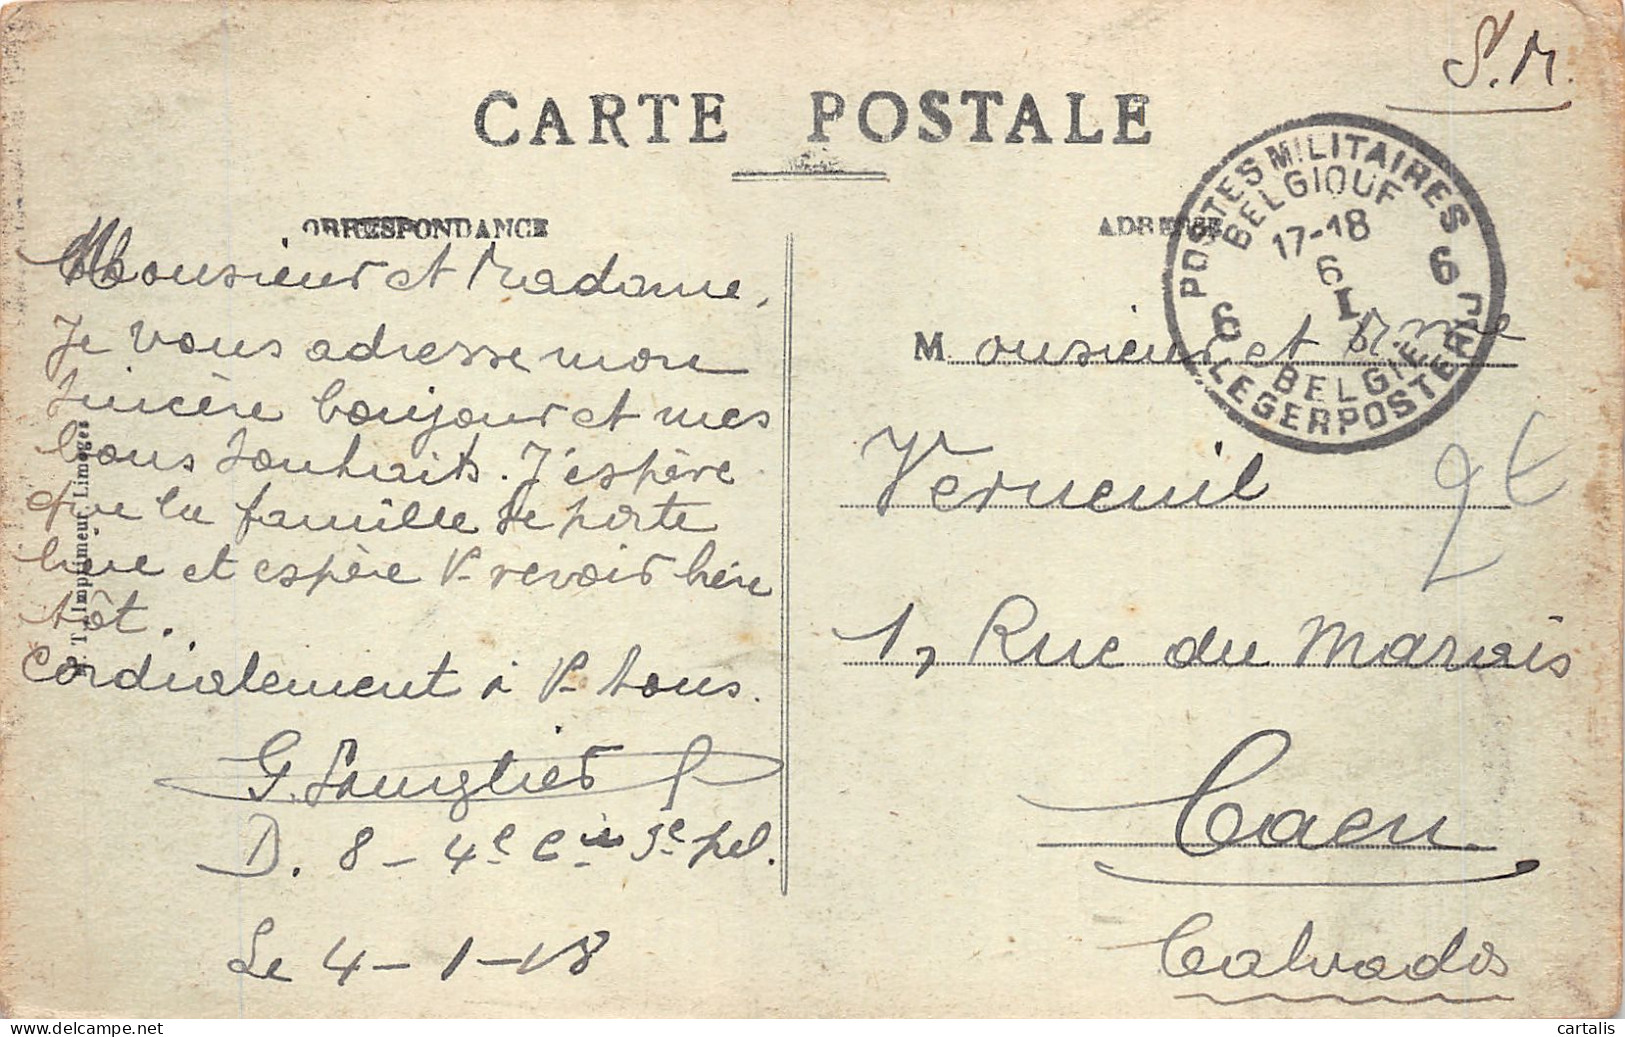 S.M.
CARTE POSTALE
CORRESPONDANCE
ADRESSE
POSTES MILITAIRES
BELGIQUE
17-18
6
I
6 6
BELGIE
LEGERPOSTERIJ
Monsieur et Madame,
Je vous adresse mon
sincère bonjour et mes
bons souhaits. J'espère
que la famille se porte
bien et espère v. revoir bien
tôt.
Cordialement à v. tous.
D. 8 - 4e Cie 3e pel.
Le 4-1-18
Imprimeur Limoges
Monsieur et Mme
Verneuil
1, Rue du Marais
Caen.
Calvados
2€
cartalis